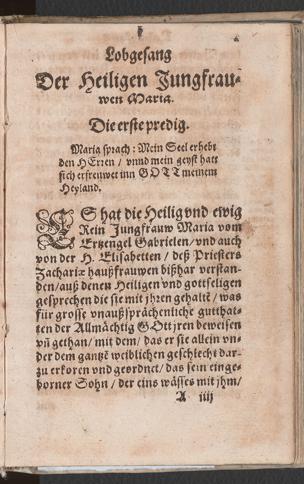 Lobgesang
Der Heiligen Jungfrau⸗
wen Maria.
Die erste predig.
Maria sprach: Mein Seel erhebt
den HErren / vnnd mein geyst hatt
sich erfreuwet inn GOTT meinem
Heyland.
ES hat die Heilig vnd ewig
Rein Jungfrauw Maria vom
Ertzengel Gabrielen / vnd auch
von der H. Elisabetten / deß Priesters
Zachariæ haußfrauwen bißhar verstan⸗
den / auß denen Heiligen vnd gottseligen
gesprechen die sie mit jhren gehalte̅ / was
für grosse vnaußsprächenliche gutthat⸗
ten der Allmächtig GOtt jren beweisen
vn̅ gethan / mit dem / das er sie allein vn⸗
der dem gantze̅ weiblichen geschlecht dar⸗
zu erkoren vnd geordnet / das sein einge⸗
borner Sohn / der eins wässes mit jhm /
A iiij